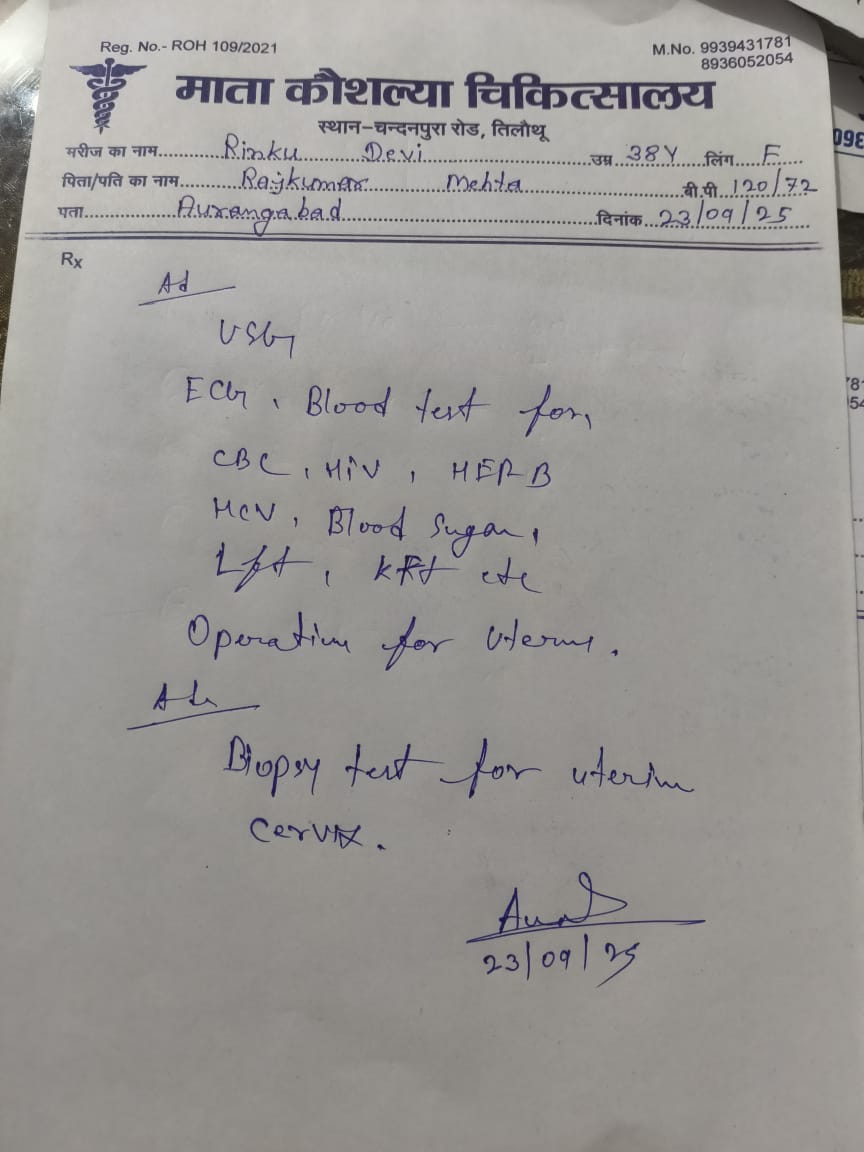 Reg. No.- ROH 109/2021
M.No. 9939431781
8936052054
माता कौशल्या चिकित्सालय
स्थान-चन्दनपुरा रोड, तिलौथू
मरीज का नाम Rinku Devi उम्र 38Y लिंग F
पिता/पति का नाम Rajkumar Mehta बी.पी. 120/72
पता Aurangabad दिनांक 23/09/25
Rx
Ad
USG
ECG, Blood test for,
CBC, HiV, HEP B
HCV, Blood Sugar,
Lft, KFt etc
Operation for Uterus.
Biopsy test for uterine
Cervix.
23/09/25